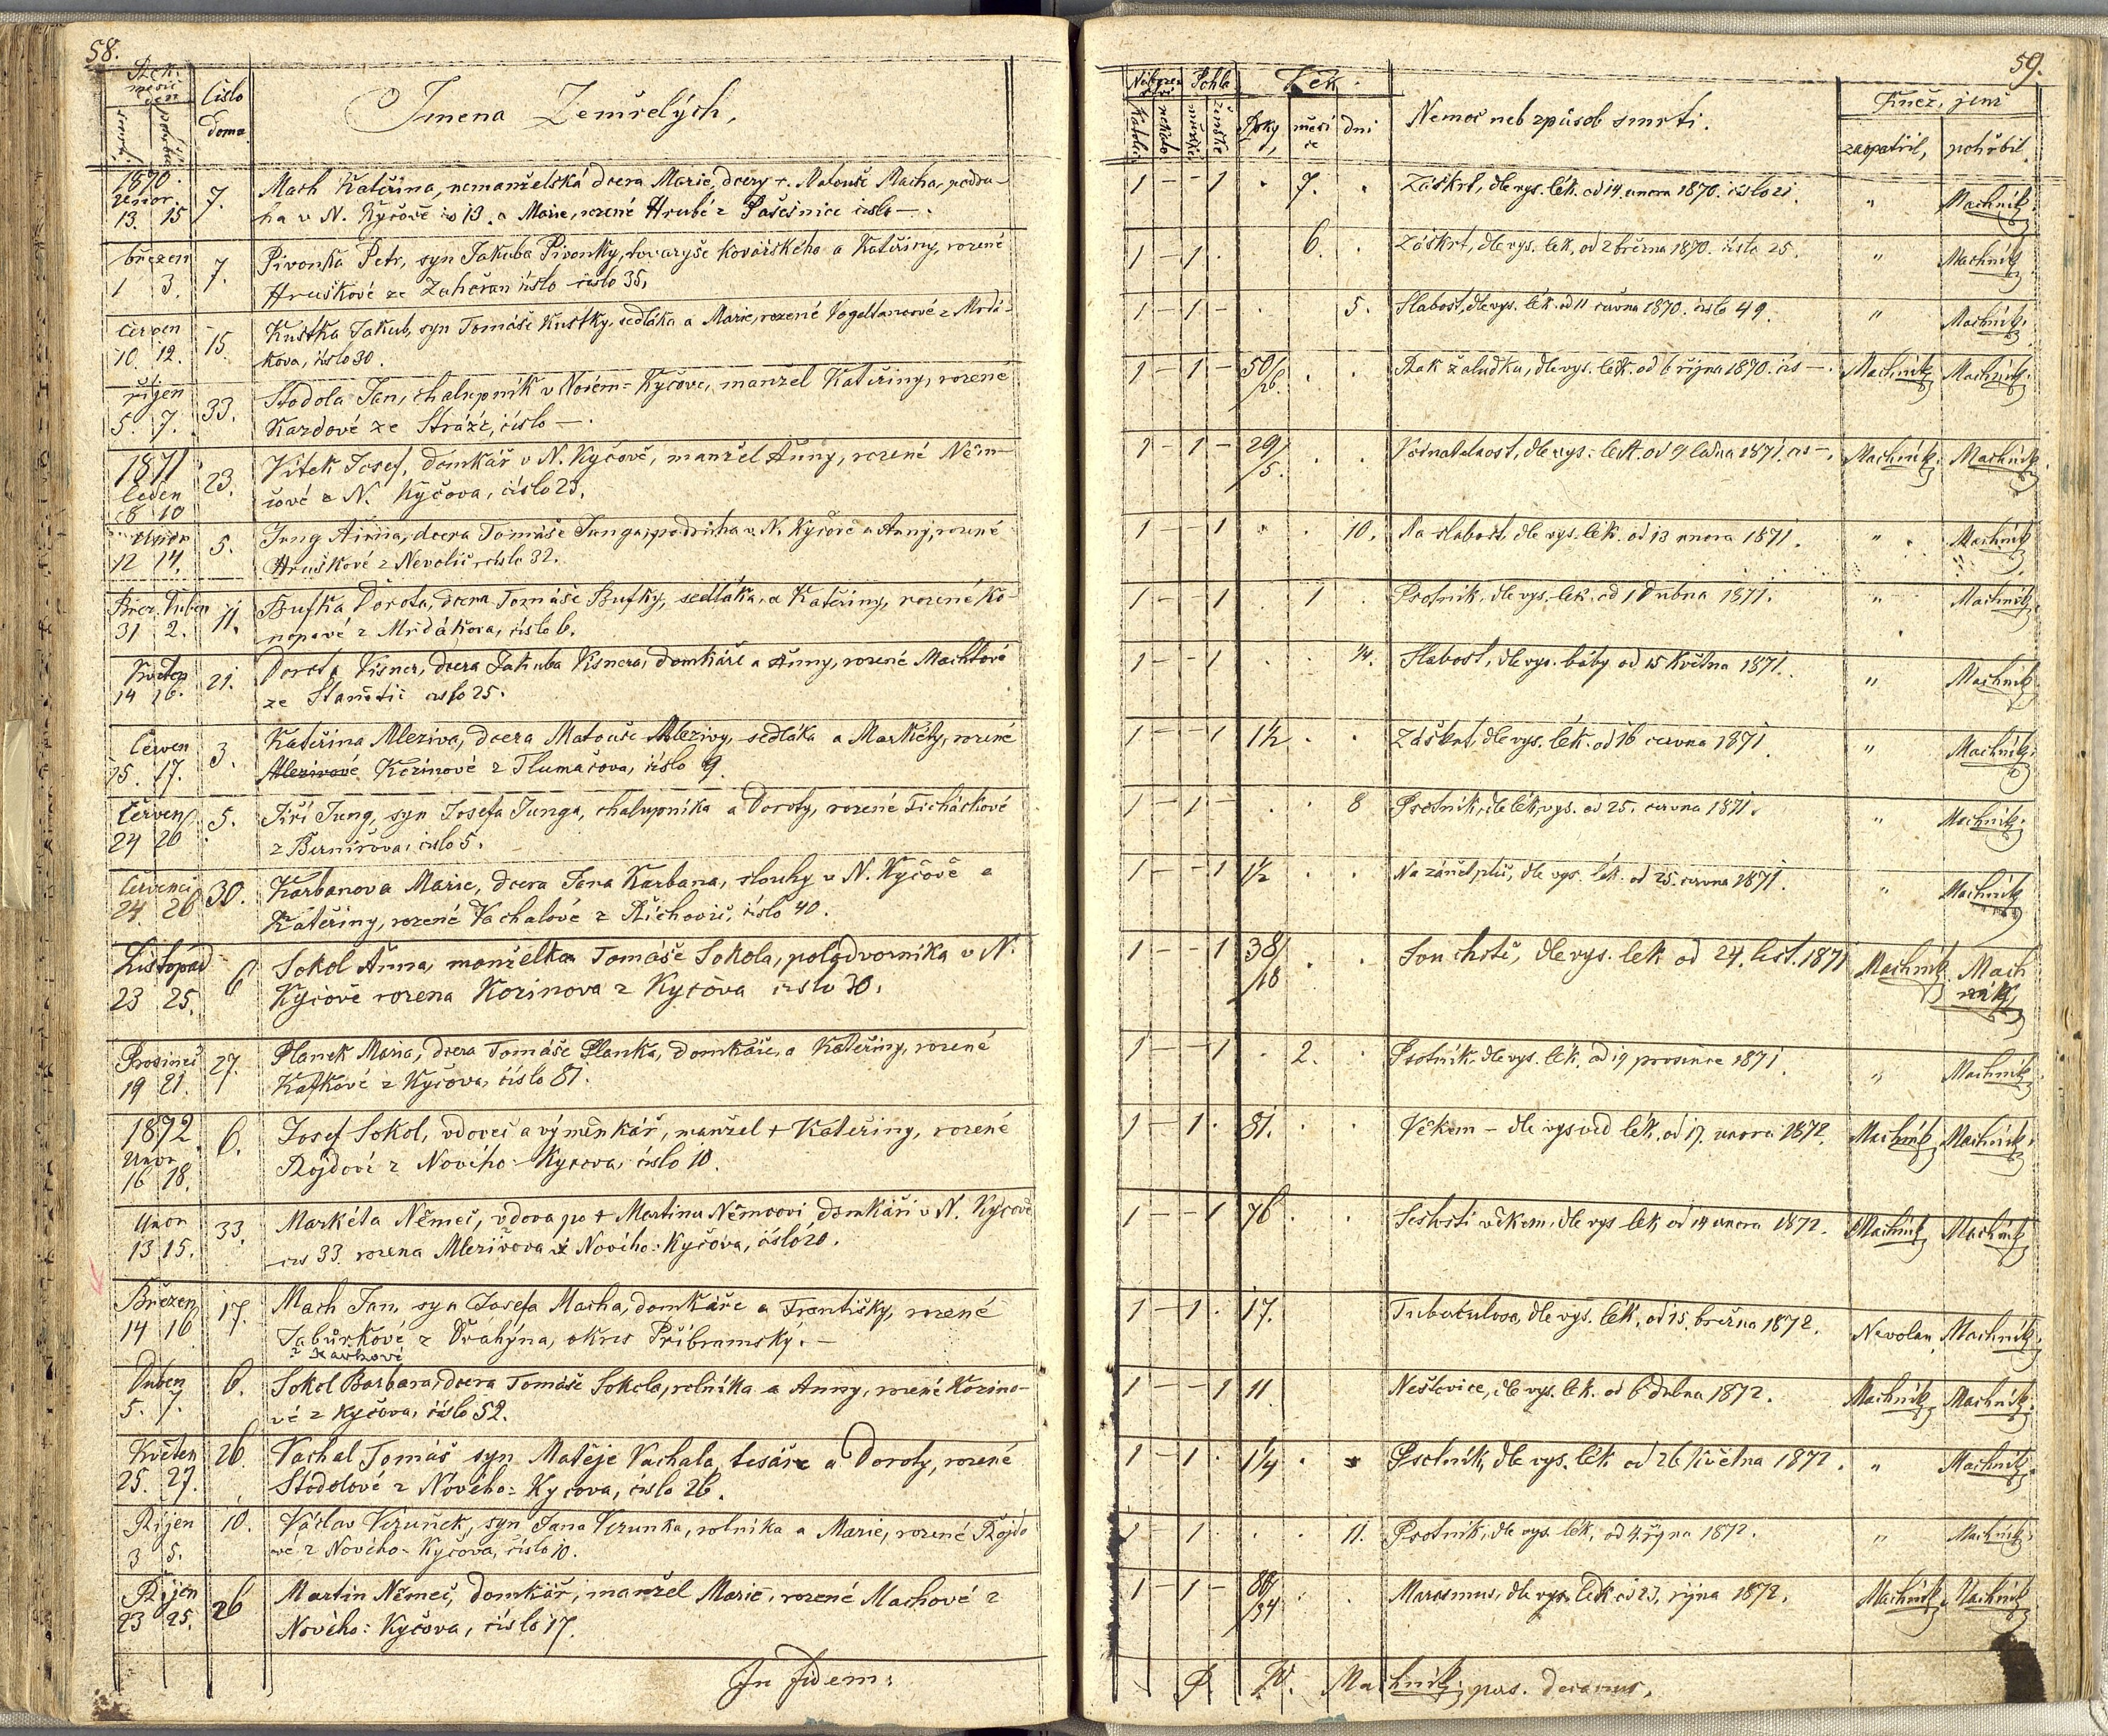 58.
Rok. měsíc den
Číslo domu
Jmena Zemřelých,
1870.
únor.
13. 15
7.
Mach Kateřina, nemanželská dcera Marie, dcery + Matouše Macha, podru-
ha v N. Kyčově č 13. a Marie, rozené Hrubé z Pašešnice číslo —.
březen
1 3.
7.
Pivonka Petr, syn Jakuba Pivonky, tovaryše kovářského a Kateřiny, rozené
Hruškové ze Zahořan číslo číslo 35,
červen
10. 12.
15.
Kustka Jakub, syn Tomáše Kustky, sedláka a Marie, rozené Vogeltanzové z Mrdá-
kova, číslo 30.
říjen
5. 7.
33.
Stodola Jan, chalupník v Novém-Kyčově, manžel Kateřiny, rozené
Kardové ze Stráže, číslo —.
1871
leden
8 10
23.
Vítek Josef, domkář v N. Kyčově, manžel Anny, rozené Něm-
cové z N. Kyčova, číslo 23.
únor
12 14.
5.
Jung Anna, dcera Tomáše Junga, podruha v N. Kyčově a Anny, rozené
Hruškové z Nevolic číslo 32.
Břez. Duben
31 2.
11.
Bufka Dorota, dcera Tomáše Bufky, sedláka, a Kateřiny, rozené Ko-
nopové z Mrdákova, číslo 6.
Květen
14 16.
21.
Dorota Kisner, dcera Jakuba Kisnera, domkáře a Anny, rozené Machtové
ze Stanětic číslo 25.
Červen
15. 17.
3.
Kateřina Mleziva, dcera Matouše Mlezivy, sedláka a Markéty, rozené
Mlezivové Kozinové z Tlumačova, číslo 9.
Červen
24 26
5.
Jiří Jung, syn Josefa Junga, chalupníka a Doroty, rozené Ticháčkové
z Bernířova, číslo 5.
Červenci
24 26
30.
Karbanova Marie, dcera Jana Karbana, slouhy v N. Kyčově a
Kateřiny, rozené Vachalové z Těchovic, číslo 40.
Listopad
23 25.
6
Sokol Anna, manželka Tomáše Sokola, polodvorníka v N.
Kyčově rozena Kozinova z Kyčova číslo 30.
Prosinec
19 21.
27.
Planek Maria, dcera Tomáše Planka, domkáře, a Kateřiny, rozené
Kafkové z Kyčova, číslo 81.
1872.
Únor
16 18.
6.
Josef Sokol, vdovec a výměnkář, manžel + Kateřiny, rozené
Rojdové z Nového-Kyčova, číslo 10.
Únor
13 15.
33.
Markéta Němec, vdova po + Martinu Němcovi domkáři v N. Kyčově
čís 33. rozena Mlezivova z Nového-Kyčova, číslo 20.
Březen
14 16
17.
Mach Jan, syn Josefa Macha, domkáře a Františky, rozené
Tabůrkové z Dráhýna, okres Příbramský.—
Duben
5. 7.
6.
Sokol Barbara, dcera Tomáše Sokola, rolníka a Anny, rozené Kozino-
vé z Kyčova, číslo 52.
Květen
25. 27.
26.
Vachal Tomáš syn Matěje Vachala, tesáře a Doroty, rozené
Stodolové z Nového-Kyčova, číslo 26.
Říjen
3 5.
10.
Václav Veruněk, syn Jana Verunka, rolníka a Marie, rozené Rojdo
vé z Nového-Kyčova, číslo 10.
Říjen
23 25.
26
Martin Němec, domkář, manžel Marie, rozené Machové z
Nového-Kyčova, číslo 17.
In fidem:
59.
Nábožen ství
Pohla
Věk.
Nemoc neb způsob smrti.
Kněz, jenž
Roky
měsí ce
dni
zaopatřil,
pohřbil
1 – – 1 . 7. . Záškrt, dle vys. lék. od 14. února 1870. číslo 21. „ Machník.
1 – 1 . 6. . Záškrt, dle vys. lék. od 2 března 1870. číslo 25. „ Machník.
1 – 1 – . 5. Slabost, dle vys. lék. od 11 června 1870. číslo 49. „ Machník.
1 – 1 – 50/6. . . Rak žaludku, dle vys. lék. od 6 října 1870. čís —. Machník Machník.
1 – 1 – 29/5. . . Vodnatelnost, dle vys. lék. od 9 ledna 1871. čís —. Machník. Machník.
1 – – 1 . . 10. Na slabost, dle vys. lék. od 13 února 1871. „ Machník
1 – – 1 . 1 . Psotník, dle vys. lék. od 1 Dubna 1871. „ Machník.
1 – – 1 . . 14. Slabost, dle vys. báby od 15 Května 1871. „ Machník.
1 – – 1 1½ . . Záškrt, dle vys. lék. od 16 června 1871. „ Machník.
1 – 1 – . . 8 Psotník, dle lék. vys. od 25. června 1871. „ Machník.
1 – – 1 1½ . . Na zánět plic, dle vys. lék. od 25. června 1871. „ Machník
1 – – 1 38/18 . . Souchotě, dle vys. lék. od 24. list. 1871 Machník. Mach
ník,
1 – – 1 . 2. . Psotník, dle vys. lék. od 19 prosince 1871. „ Machník.
1 – 1 . 81. . . Věkem – dle vysvěd lék. od 17. února 1872. Machník Machník.
1 – – 1 76 . . Sešlosti věkem, dle vys lék od 14 února 1872. Machník Machník
1 – 1 . 17. Tuberkulosa, dle vys. lék. od 15. března 1872. Nevolan, Machník.
1 – – 1 11 Neštovice, dle vys. lék. od 6 dubna 1872. Machník, Machník.
1 – 1 . 1¼ . Psotník, dle vys. lék od 26 Května 1872. „ Machník.
1 – 1 . . . 11. Psotník, dle vys. lék. od 4. října 1872. „ Machník.
1 – 1 – . . Marasmus, dle vys. lék od 23. října 1872. Machník. Machník
P. W. Machník, pas. decanus.